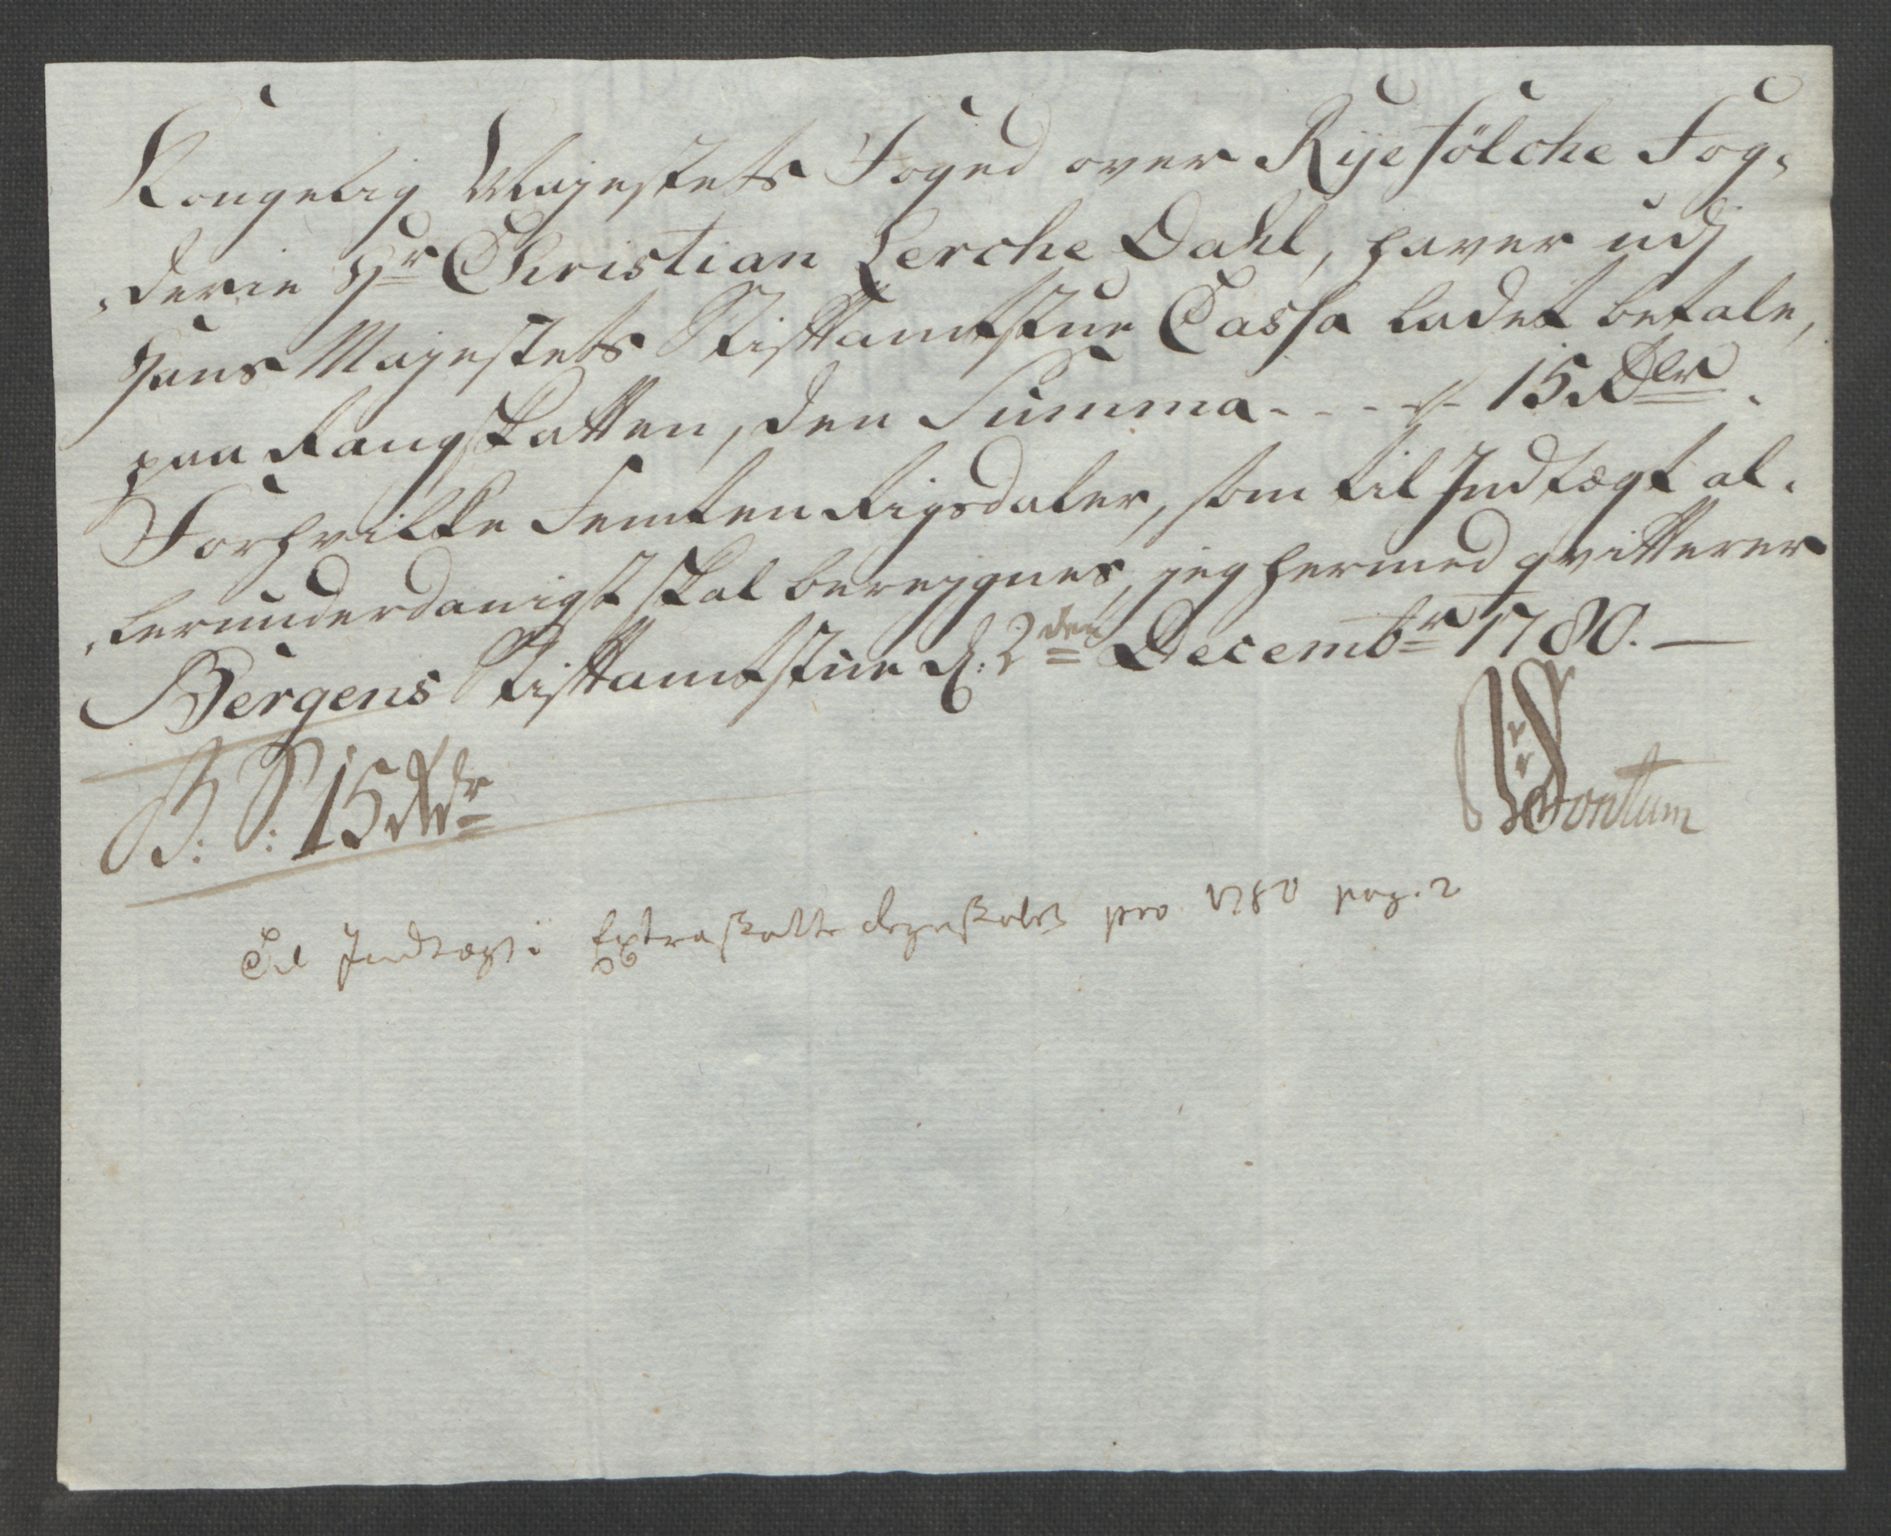 Kongelig Majestets Foged over Ryefølche Fog-
derie Hr Christian Lerche Dahl, haver udj
Hans Majestets Stiftamtstue Cassa ladet betale,
paa Rangskatten, den Summa - - - - 15 Rdlr.
Forhvilke Femten Rigsdaler, som til Indtægt al-
lerunderdanigst skal beregnes, jeg hermed qvitterer
Bergens Stiftamtstue d: 2den Decembr 1780. —
B: S: 15 Rdr
Til Indtægt i Extraskatte pro 1780 pag. 2